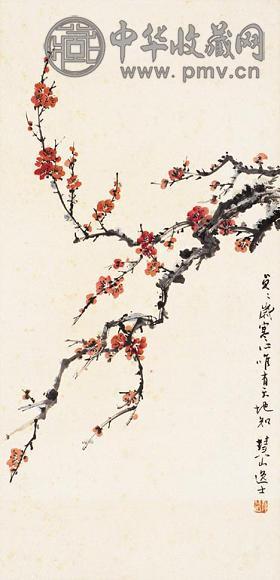 中华收藏网
www.pmv.cn
歲寒心唯有天地知 山逸士